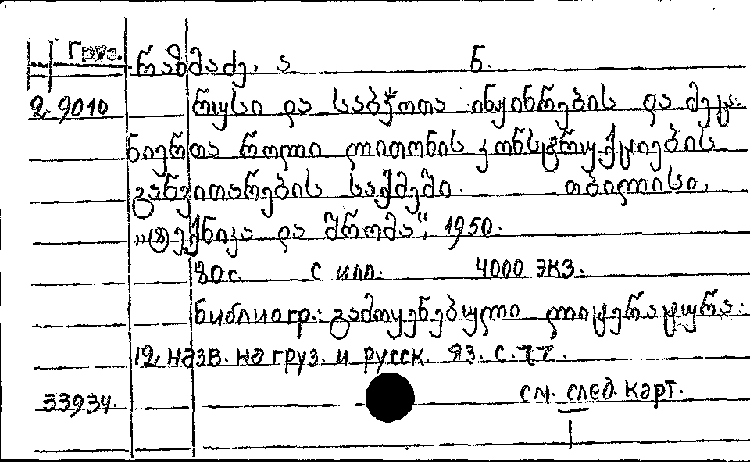 Груз.
რაზმაძე, ა ნ.
2.9010 რუსი და საბჭოთა ინჟინრების და მეცნიერთა როლი ლითონის კონსტრუქციების
განვითარების საქმეში. თბილისი,
„ტექნიკა და შრომა“, 1950.
80 с. с илл. 4000 экз.
Библиогр.: გამოყენებული ლიტერატურა:
12 назв. на груз. и русск. яз. с. 77.
33934. см. след. карт.